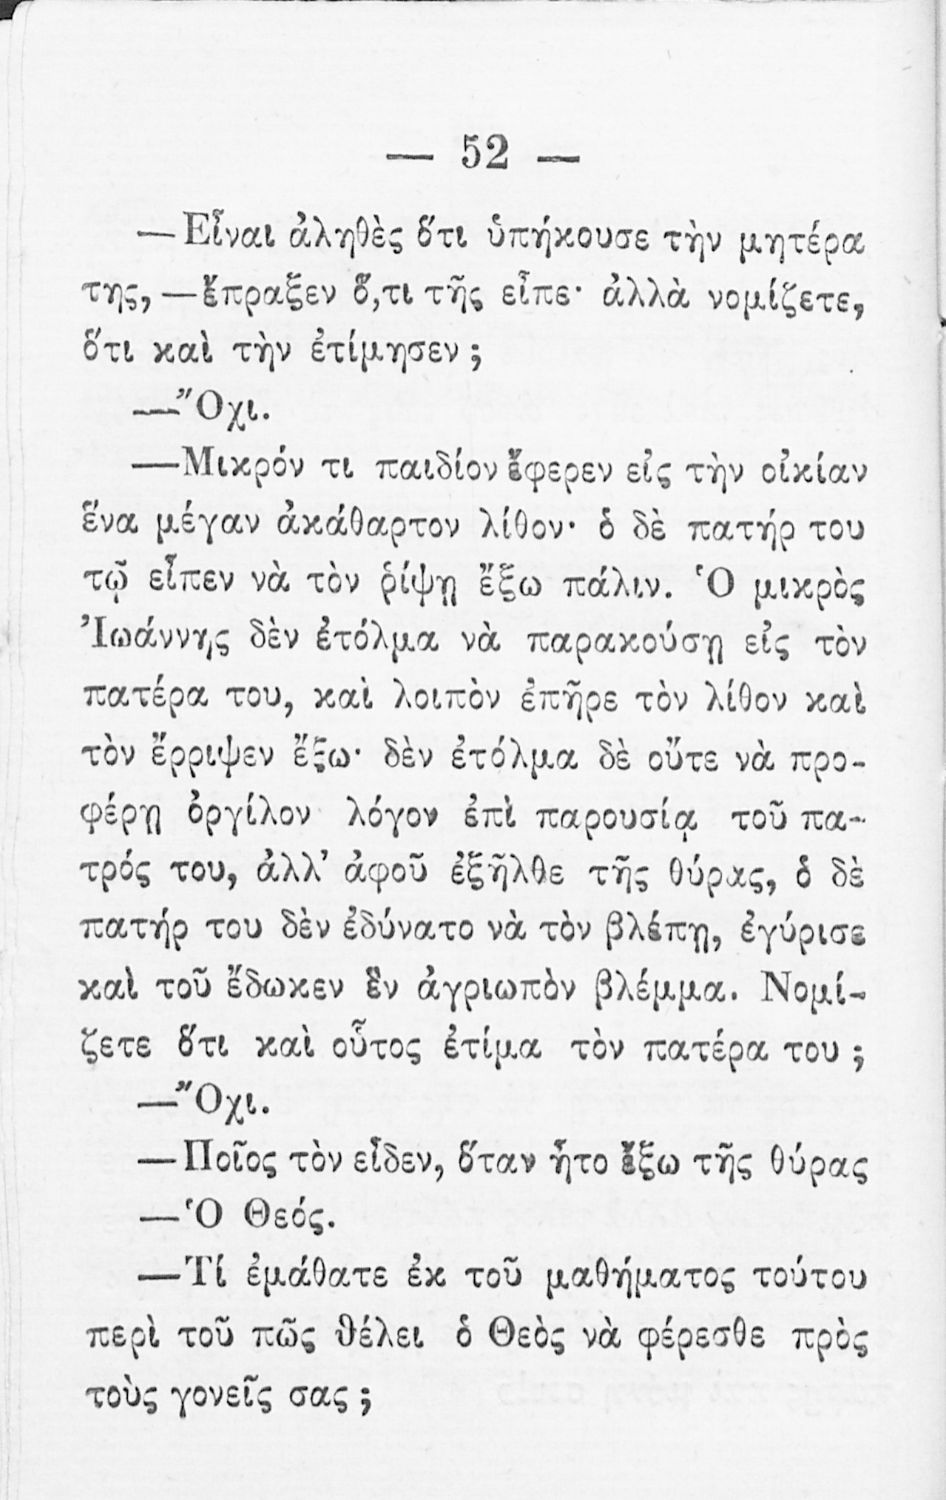 — 52 —
—Εἶναι ἀληθὲς ὅτι ὑπήκουσε τὴν μητέρα
της,—ἔπραξεν ὅ,τι τῆς εἶπε· ἀλλὰ νομίζετε,
ὅτι καὶ τὴν ἐτίμησεν ;
—Ὄχι.
—Μικρόν τι παιδίον ἔφερεν εἰς τὴν οἰκίαν
ἕνα μέγαν ἀκάθαρτον λίθον· ὁ δὲ πατήρ του
τῷ εἶπεν νὰ τὸν ῥίψῃ ἔξω πάλιν. Ὁ μικρὸς
Ἰωάννης δὲν ἐτόλμα νὰ παρακούσῃ εἰς τὸν
πατέρα του, καὶ λοιπὸν ἐπῆρε τὸν λίθον καὶ
τὸν ἔρριψεν ἔξω· δὲν ἐτόλμα δὲ οὔτε νὰ προ-
φέρῃ ὀργίλον λόγον ἐπὶ παρουσίᾳ τοῦ πα-
τρός του, ἀλλ’ ἀφοῦ ἐξῆλθε τῆς θύρας, ὁ δὲ
πατήρ του δὲν ἐδύνατο νὰ τὸν βλέπῃ, ἐγύρισε
καὶ τοῦ ἔδωκεν ἓν ἀγριωπὸν βλέμμα. Νομί-
ζετε ὅτι καὶ οὗτος ἐτίμα τὸν πατέρα του ;
—Ὄχι.
—Ποῖος τὸν εἶδεν, ὅταν ἦτο ἔξω τῆς θύρας
—Ὁ Θεός.
—Τί ἐμάθατε ἐκ τοῦ μαθήματος τούτου
περὶ τοῦ πῶς θέλει ὁ Θεὸς νὰ φέρεσθε πρὸς
τοὺς γονεῖς σας ;